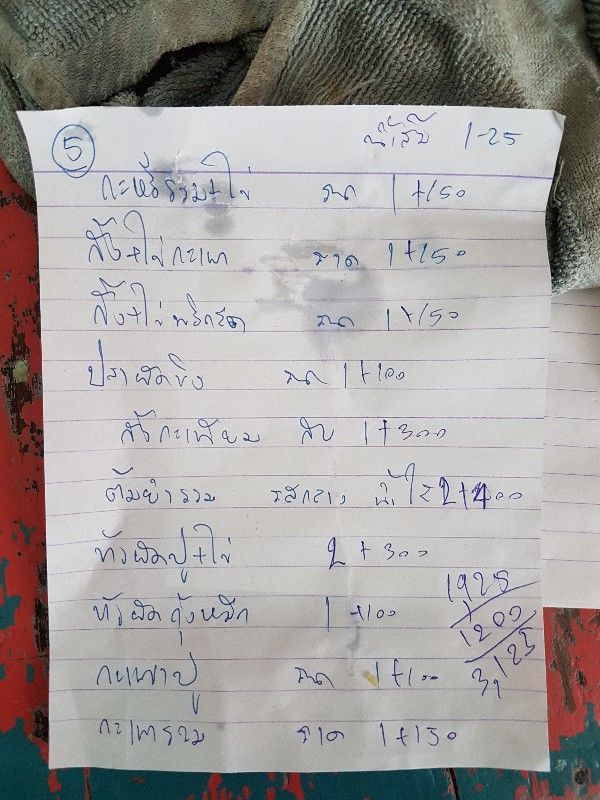 5
น้ำส้ม 1-25
กะหรี่รวม+ไข่ ราด 1+150
กุ้ง+ไข่กะเพา ราด 1+150
กุ้ง+ไข่พริกสด ราด 1+150
ปลาผัดขิง ราด 1+100
กุ้งกะเทียม สับ 1+300
ต้มยำรวม รสกลาง น้ำใส 2+400
ข้าวผัดปู+ไข่ 2+300
ข้าวผัดกุ้งหมึก 1+100
กะเพาปู ราด 1+100
กะเพารวม ราด 1+150
1925
1200
3,125